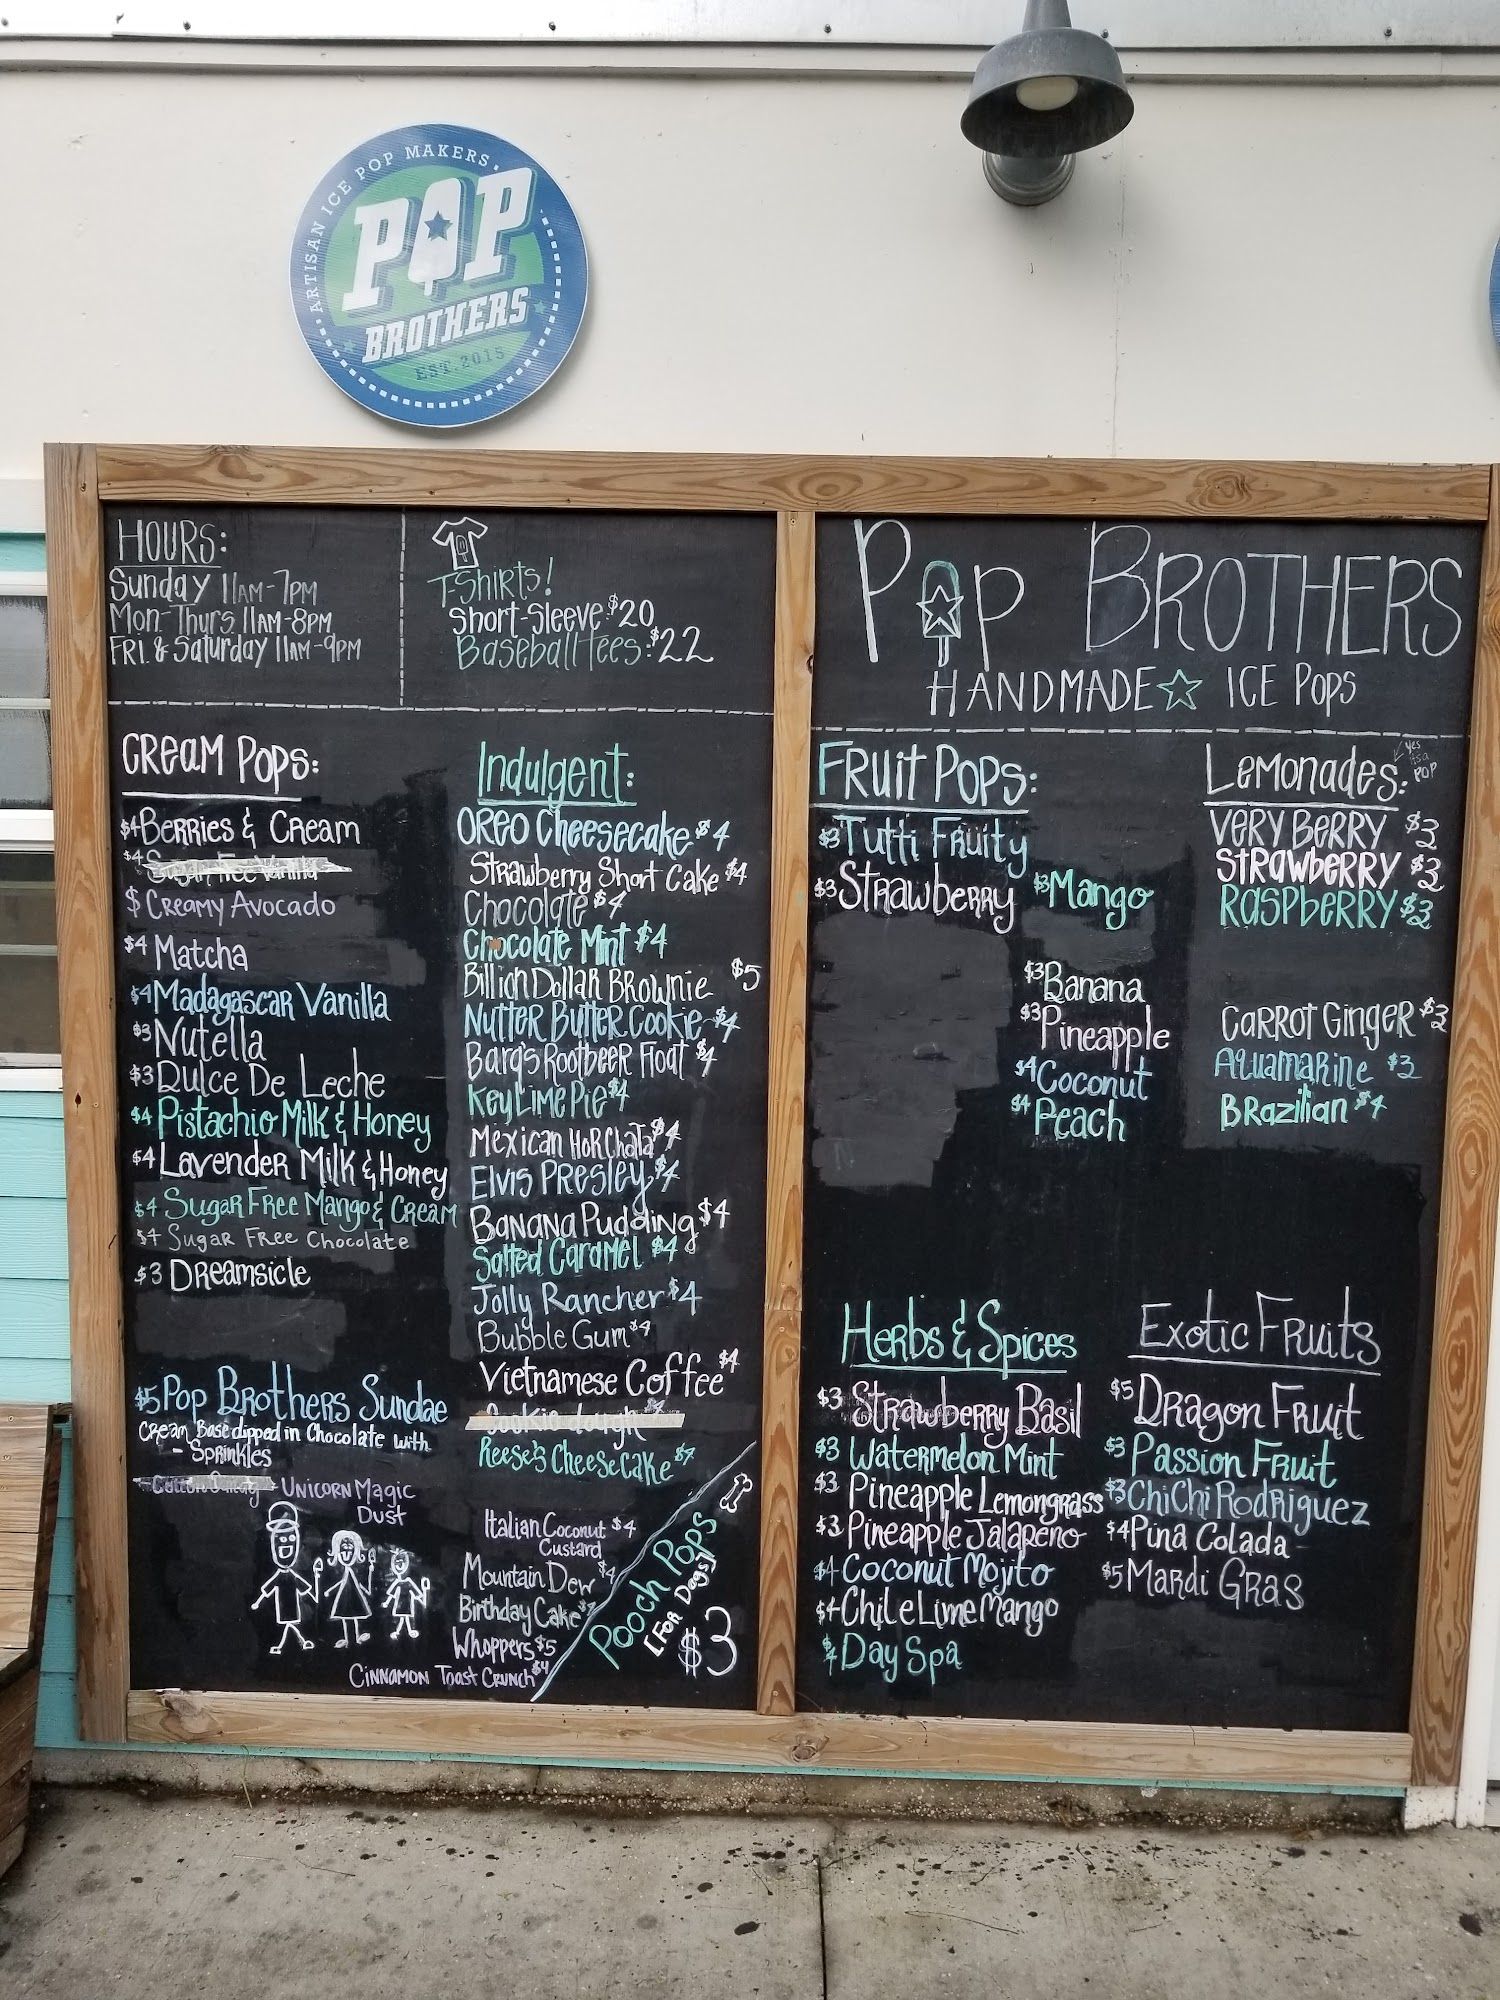 ARTISAN ICE POP MAKERS
POP
BROTHERS
EST. 2015
HOURS:
Sunday 11AM-7PM
Mon-Thurs 11AM-8PM
FRI. & Saturday 11AM-9PM
T-Shirts!
Short-Sleeve $20
Baseball Tees: $22
POP BROTHERS
HANDMADE ICE POPS
CREAM POPS:
$4 Berries & Cream
$4 Sugar Free Vanilla
$ Creamy Avocado
$4 Matcha
$4 Madagascar Vanilla
$3 Nutella
$3 Dulce De Leche
$4 Pistachio Milk & Honey
$4 Lavender Milk & Honey
$4 Sugar Free Mango & Cream
$4 Sugar Free Chocolate
$3 Dreamsicle
$5 Pop Brothers Sundae
Cream Base dipped in Chocolate with
- Sprinkles
Cotton Candy - Unicorn Magic
Dust
Indulgent:
Oreo Cheesecake $4
Strawberry Short Cake $4
Chocolate $4
Chocolate Mint $4
Billion Dollar Brownie $5
Nutter Butter Cookie $4
Barq's Rootbeer Float $4
Key Lime Pie $4
Mexican Horchata $4
Elvis Presley $4
Banana Pudding $4
Salted Caramel $4
Jolly Rancher $4
Bubble Gum $4
Vietnamese Coffee $4
Cookie dough
Reese's Cheesecake
Italian Coconut $4
Custard
Mountain Dew $4
Birthday Cake
Whoppers $5
Cinnamon Toast Crunch $4
Pooch Pops
[For Dogs]
$3
FRUIT POPS:
$3 Tutti Fruity
$3 Strawberry
$3 Mango
$3 Banana
$3 Pineapple
$4 Coconut
$4 Peach
Lemonades:
yes
its a
POP
Very Berry $3
Strawberry $3
Raspberry $3
Carrot Ginger $3
Aquamarine $3
Brazilian $4
Herbs & Spices
$3 Strawberry Basil
$3 Watermelon Mint
$3 Pineapple Lemongrass
$3 Pineapple Jalapeno
$4 Coconut Mojito
$4 Chile Lime Mango
$4 Day Spa
Exotic Fruits
$5 Dragon Fruit
$3 Passion Fruit
$3 ChiChi Rodriguez
$4 Pina Colada
$5 Mardi Gras